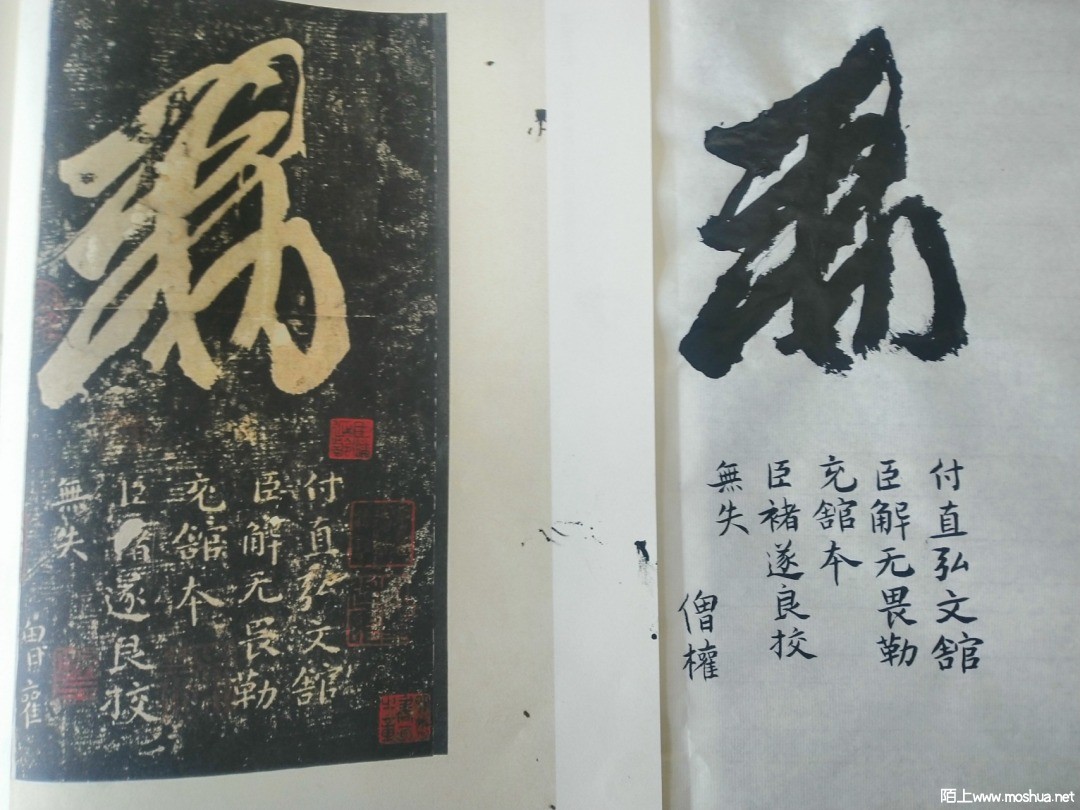 敕
付直弘文舘
臣解无畏勒
充舘本
臣褚遂良挍
無失
僧權
敕
付直弘文舘
臣解无畏勒
充舘本
臣褚遂良挍
無失
僧權
陌上www.moshua.net